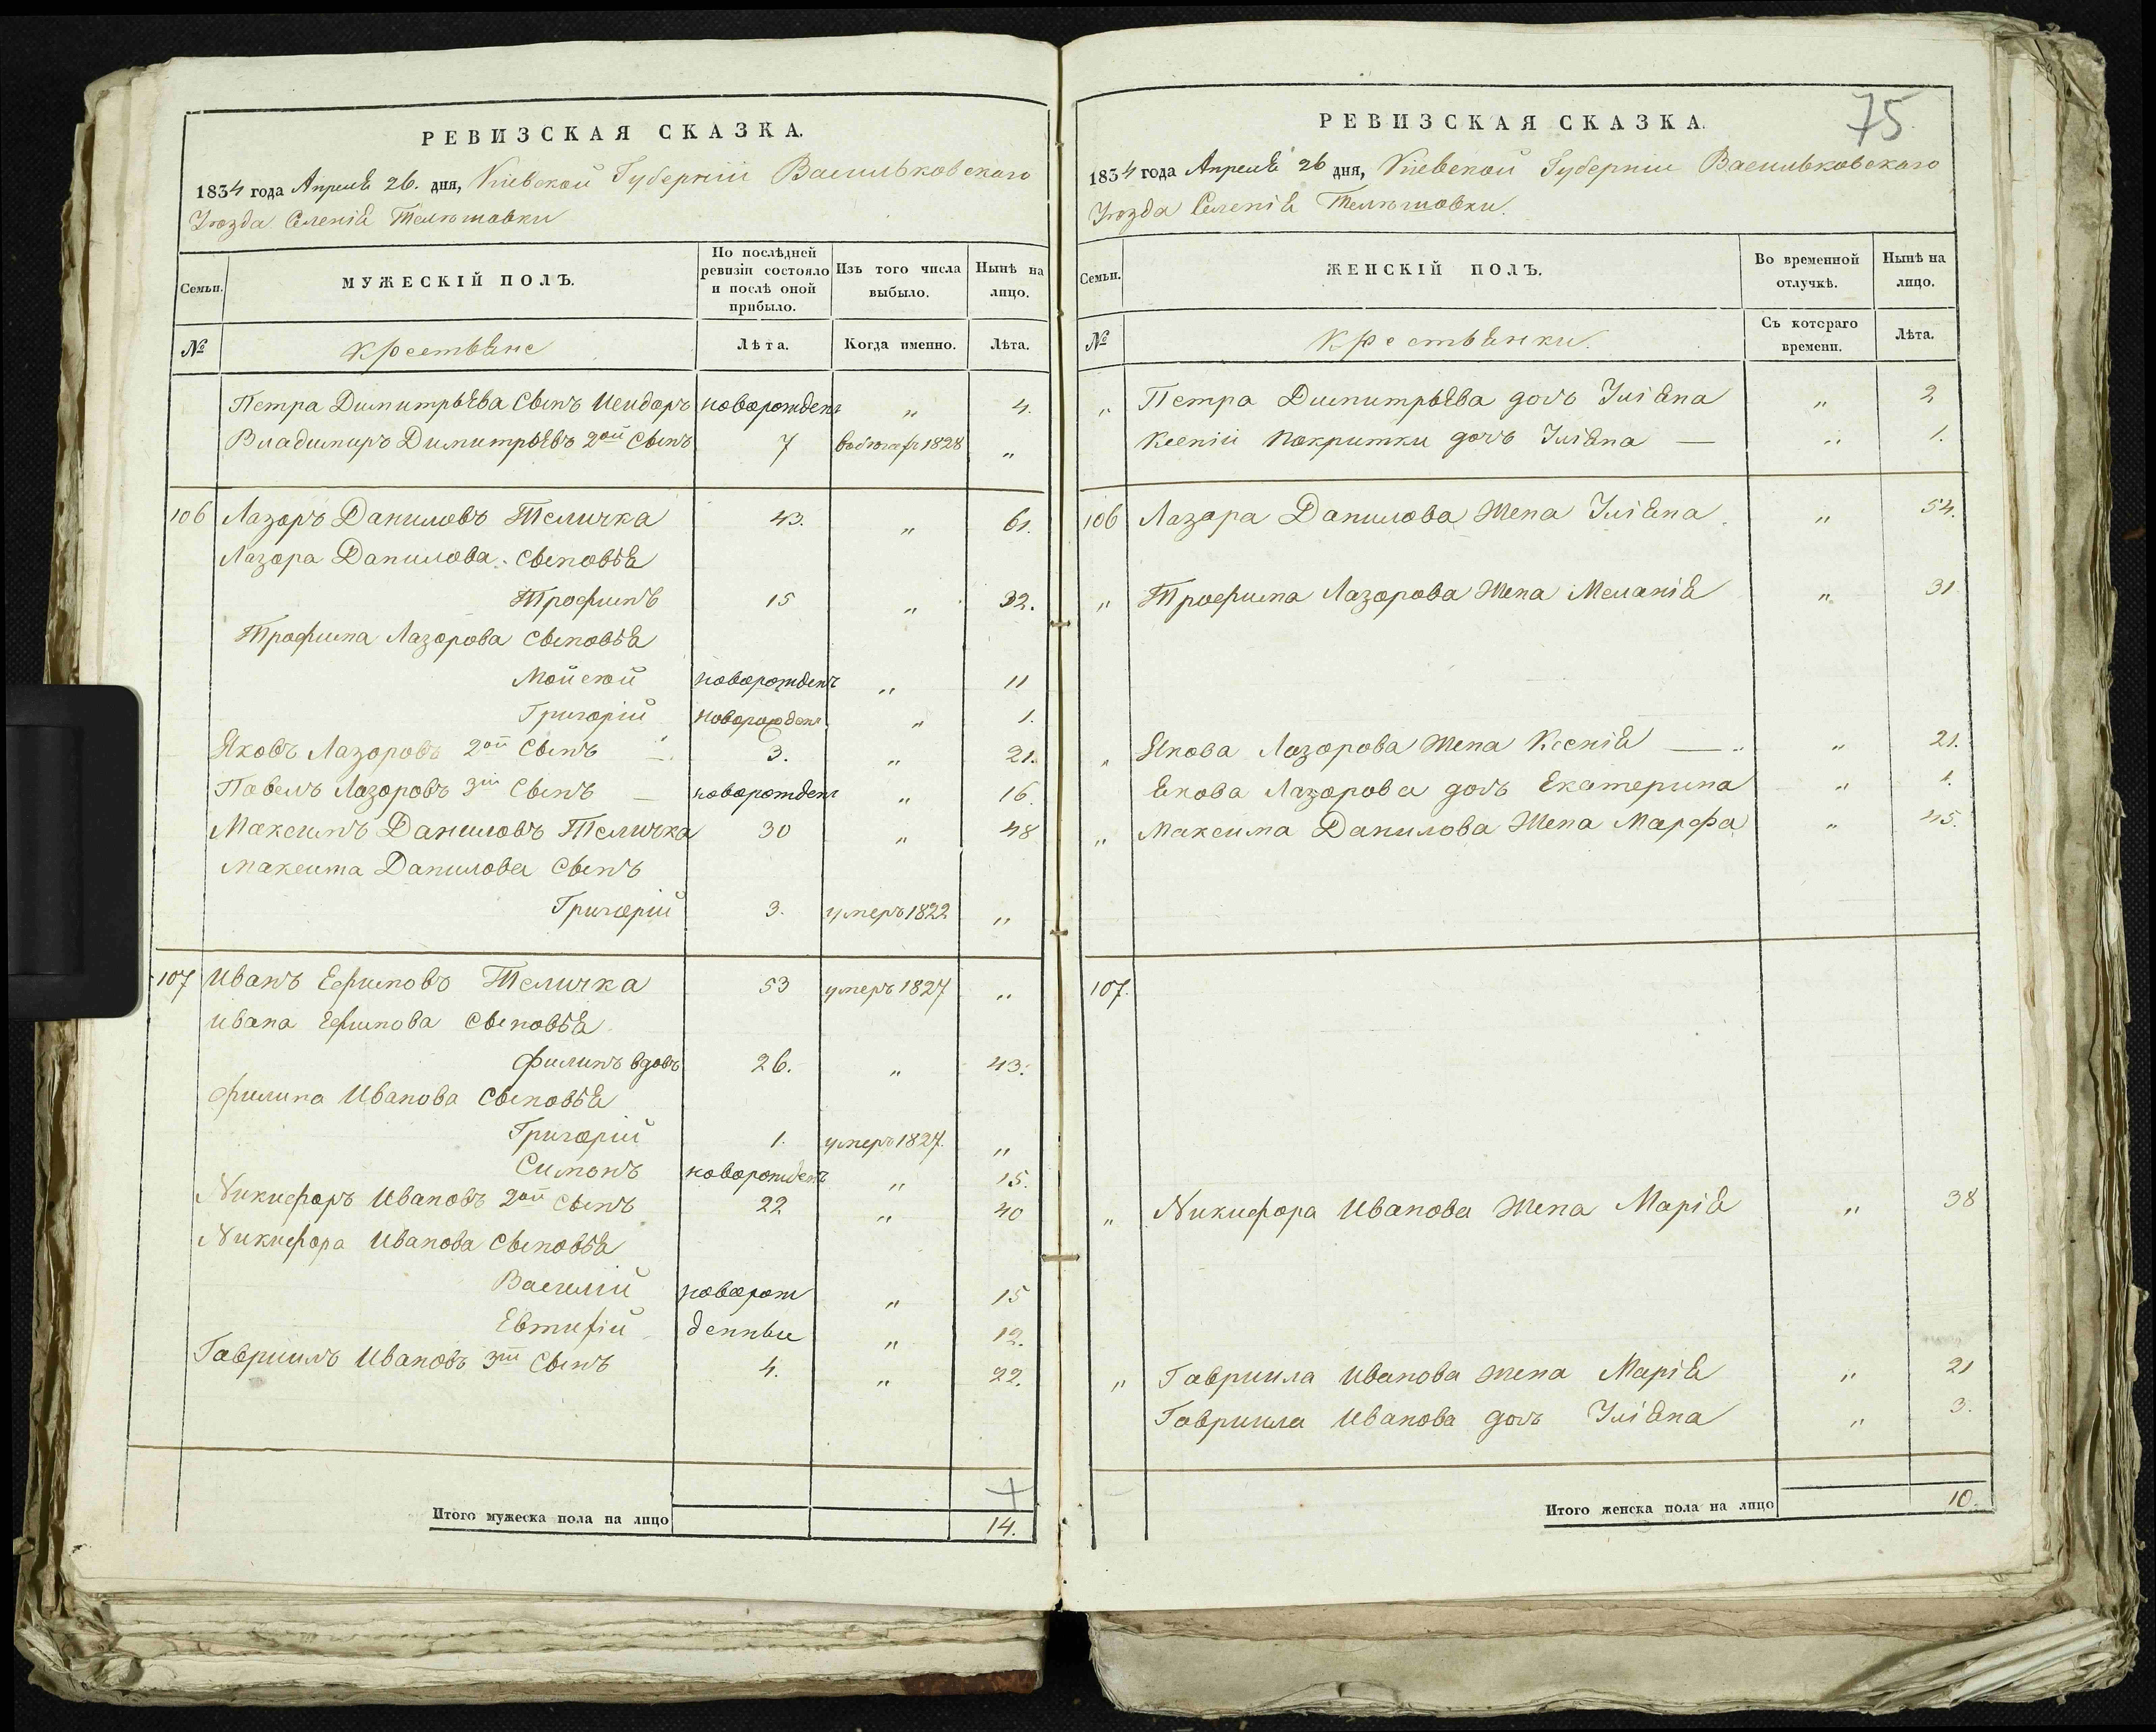 РЕВИЗСКАЯ СКАЗКА.
1834 года Апреля 26. дня, Кіевской Губерніи Васильковскаго
Уѣзда Селенія Телѣшовки
Семьи.
МУЖЕСКІЙ ПОЛЪ.
По послѣдней ревизіи состояло и послѣ оной прибыло.
Изъ того числа выбыло.
Нынѣ на лицо.
№
Крестьяне
Лѣта.
Когда именно.
Лѣта.
Петра Димитрьева Сынъ Исидоръ новорожденъ " 4.
Владимиръ Димитрьевъ 2ой Сынъ 7 1828 "
106 Лазоръ Даниловъ Теличка 43. " 61.
Лазора Данилова Сыновья
Трофимъ 15 " 32.
Трофима Лазорова Сыновья
Мойсей новорожденъ " 11
Григорій новорожденъ " 1.
Яковъ Лазоровъ 2ой Сынъ 3. " 21.
Павелъ Лазоровъ 3ій Сынъ — новорожденъ " 16.
Максимъ Даниловъ Теличка 30 " 48
Максима Данилова Сынъ
Григорій 3. умеръ 1822 "
107 Иванъ Ефимовъ Теличка 53 умеръ 1827 "
Ивана Ефимова Сыновья
Филипъ вдовъ 26. " 43.
Филипа Иванова Сыновья
Григорій 1. умеръ 1827. "
Симонъ новорожденъ " 15.
Никифоръ Ивановъ 2ой Сынъ 22 " 40
Никифора Иванова Сыновья
Василій новорож " 15
Евтифій денные " 12.
Гавриилъ Ивановъ 3ій Сынъ 4. " 22.
Итого мужеска пола на лицо 14.
75
РЕВИЗСКАЯ СКАЗКА.
1834 года Апреля 26 дня, Кіевской Губерніи Васильковскаго
Уѣзда Селенія Телѣшовки.
Семьи.
ЖЕНСКІЙ ПОЛЪ.
Во временной отлучкѣ.
Нынѣ на лицо.
№
Крестьянки.
Съ котораго времени.
Лѣта.
" Петра Димитрьева дочь Уліяна " 2
Ксеніи Покритки дочь Уліяна — " 1.
106 Лазора Данилова Жена Уліяна. " 54.
" Трофима Лазорова Жена Меланія " 31
" Якова Лазорова Жена Ксенія — " 21.
Якова Лазорова дочь Екатерина " 1.
" Максима Данилова Жена Марфа " 45.
107.
" Никифора Иванова Жена Марія " 38
" Гавриила Иванова жена Марія " 21
Гавриила Иванова дочь Уліяна " 3.
Итого женска пола на лицо 10.